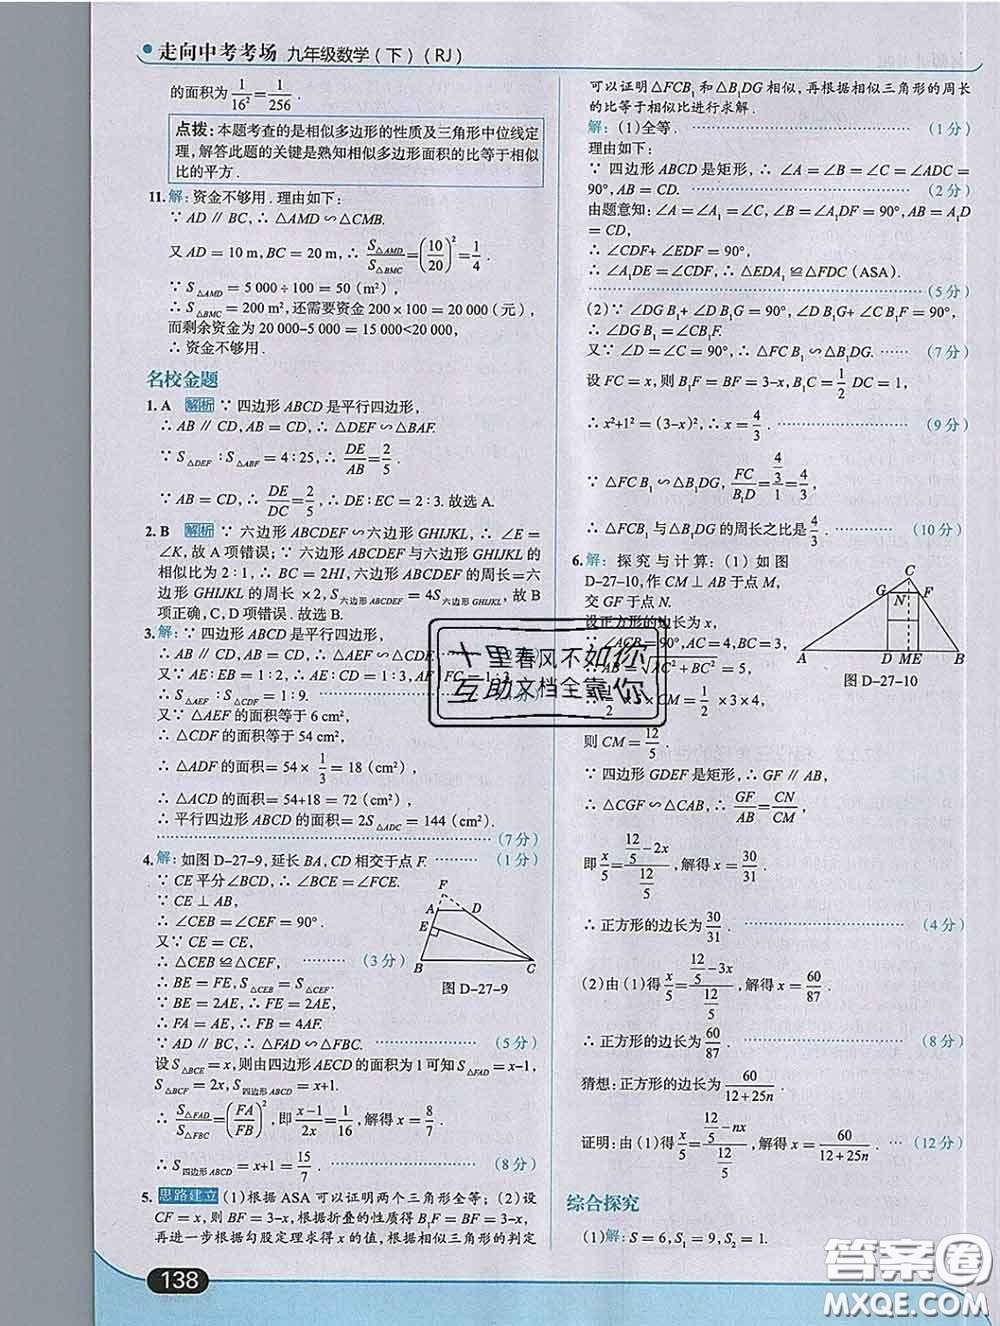 走向中考考场 九年级数学(下)(RJ)
的面积为1/16²=1/256.
点拨:本题考查的是相似多边形的性质及三角形中位线定
理,解答此题的关键是熟知相似多边形面积的比等于相似
比的平方.
11.解:资金不够用.理由如下:
∵AD∥BC,∴△AMD∽△CMB.
又AD=10 m,BC=20 m,∴S△AMD/S△BMC=(10/20)²=1/4
∵S△AMD=5 000÷100=50(m²),
∴S△BMC=200 m²,还需要资金200×100=20 000(元),
而剩余资金为20 000-5 000=15 000<20 000,
∴资金不够用.
名校金题
1.A 解析 ∵四边形ABCD是平行四边形,
∴AB∥CD,AB=CD,∴△DEF∽△BAF.
∵S△DEF:S△ABF=4:25,∴DE/AB=2/5.
∵AB=CD,∴DE/DC=2/5,∴DE:EC=2:3.故选A.
2.B 解析 ∵六边形ABCDEF∽六边形GHIJKL,∴∠E=
∠K,故A项错误;∵六边形ABCDEF与六边形GHIJKL的
相似比为2:1,∴BC=2HI,六边形ABCDEF的周长=六
边形GHIJKL的周长×2,S六边形ABCDEF=4S六边形GHIJKL,故B
项正确,C,D项错误.故选B.
3.解:∵四边形ABCD是平行四边形,
∴AB∥CD,∴△AEF∽△CDF.
又∵AE:EB=1:2,∴AE:CD=1:3,AF:FC=1:3
∴S△AEF:S△CDF=1:9.
又∵△AEF的面积等于6 cm²,
∴△CDF的面积等于54 cm²,
∴△ADF的面积=54×1/3=18(cm²),
∴△ACD的面积=54+18=72(cm²),
∴平行四边形ABCD的面积=2S△ADC=144(cm²).
(7分)
4.解:如图D-27-9,延长BA,CD相交于点F. (1分)
∵CE平分∠BCD,∴∠BCE=∠FCE.
∵CE⊥AB,
∴∠CEB=∠CEF=90°.
又∵CE=CE,
∴△CEB≌△CEF, (3分)
∴BE=FE,S△CEB=S△CEF.
∵BE=2AE,∴FE=2AE,
∴FA=AE,∴FB=4AF.
∵AD∥BC,∴△FAD∽△FBC. (5分)
设S△BCE=x,则由四边形AECD的面积为1可知S△FAD=x-1,
S△BCF=2x,S四边形ABCD=x+1.
∴S△FAD/S△FBC=(FA/FB)²,即x-1/2x=1/16,解得x=8/7.
∴S四边形ABCD=x+1=15/7. (8分)
F
A D
E
B C
图D-27-9
5.思路建立 (1)根据ASA可以证明两个三角形全等;(2)设
CF=x,则BF=3-x,根据折叠的性质得B₁F=BF=3-x,
再进一步根据勾股定理求得x的值,根据相似三角形的判定
138
可以证明△FCB₁和△B₁DG相似,再根据相似三角形的周长
的比等于相似比进行求解.
解:(1)全等. (1分)
理由如下:
∵四边形ABCD是矩形,∴∠A=∠B=∠C=∠ADC=
90°,AB=CD. (2分)
由题意知:∠A=∠A₁=∠C,∠B=∠A₁DF=90°,AB=A₁D
=CD,
∴∠CDF+∠EDF=90°.
∴∠A₁DE=∠CDF,∴△EDA₁≌△FDC(ASA).
(5分)
(2)∵∠DGB₁+∠DB₁G=90°,∠DB₁G+∠CB₁F=90°,
∴∠DGB₁=∠CB₁F.
又∵∠D=∠C=90°,∴△FCB₁∽△B₁DG. (7分)
设FC=x,则B₁F=BF=3-x,B₁C=1/2 DC=1,
∴x²+1²=(3-x)²,∴x=4/3. (9分)
∵△FCB₁∽△B₁DG,FC/B₁D=(4/3)/1=4/3,
∴△FCB₁与△B₁DG的周长之比是4/3. (10分)
6.解:探究与计算:(1)如图
D-27-10,作CM⊥AB于点M,
交GF于点N.
设正方形的边长为x.
∵∠ACB=90°,AC=4,BC=3,
∴AB=√AC²+BC²=5,
1/2×5×CM=1/2×3×4,
则CM=12/5.
C
G F
N
A D M E B
图D-27-10
∵四边形GDEF是矩形,∴GF∥AB,
∴△CGF∽△CAB,∴GF/AB=CN/CM,
即x/5=(12/5-2x)/(12/5),解得x=30/31
∴正方形的边长为30/31. (4分)
(2)由(1)得x/5=(12/5-3x)/(12/5),解得x=60/87.
∴正方形的边长为60/87. (8分)
猜想:正方形的边长为60/12+25n
证明:由(1)得x/5=(12/5-nx)/(12/5),解得x=60/12+25n. (12分)
综合探究
(1)解:S=6,S₁=9,S₂=1.
十里春风不如你
互助文档全靠你
答案圈
MXQE.COM